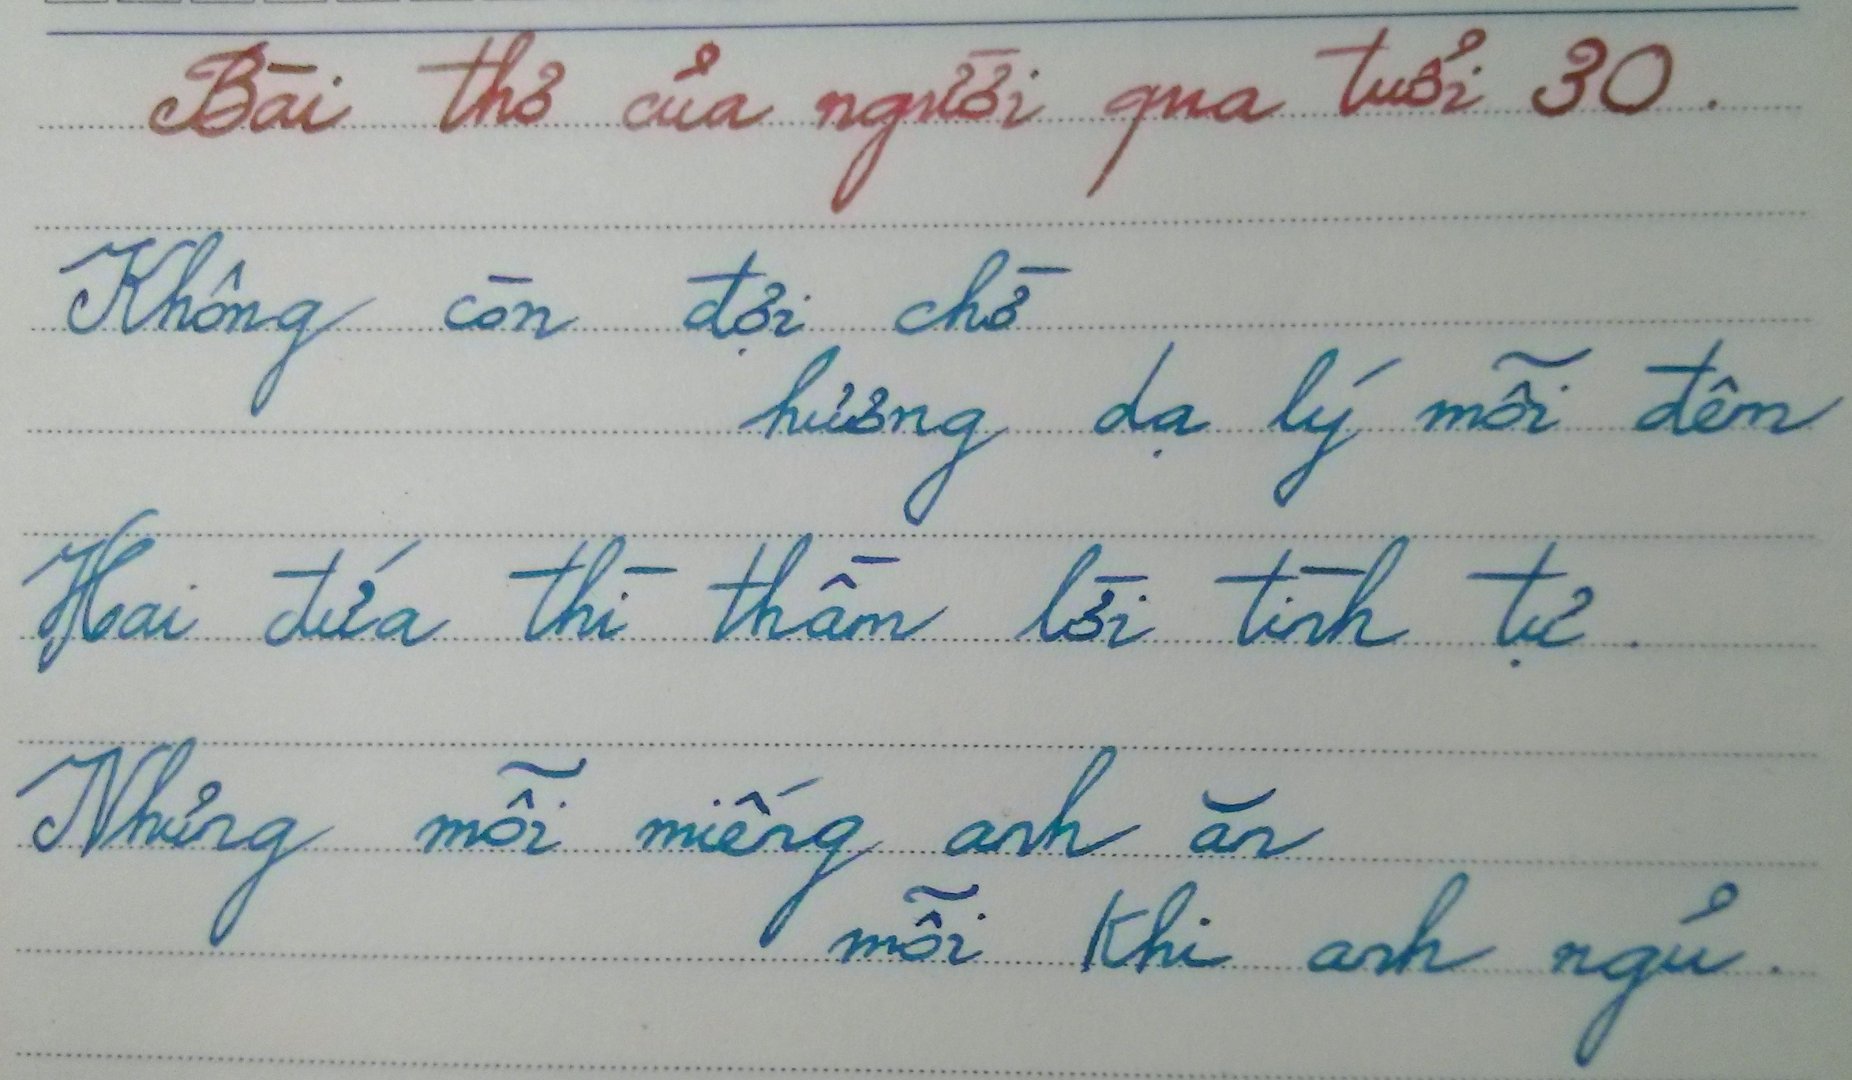 Bài thơ của người qua tuổi 30.
Không còn đợi chờ
hương dạ lý mỗi đêm
Hai đứa thì thầm lời tình tự.
Nhưng mỗi miếng anh ăn
mỗi khi anh ngủ.